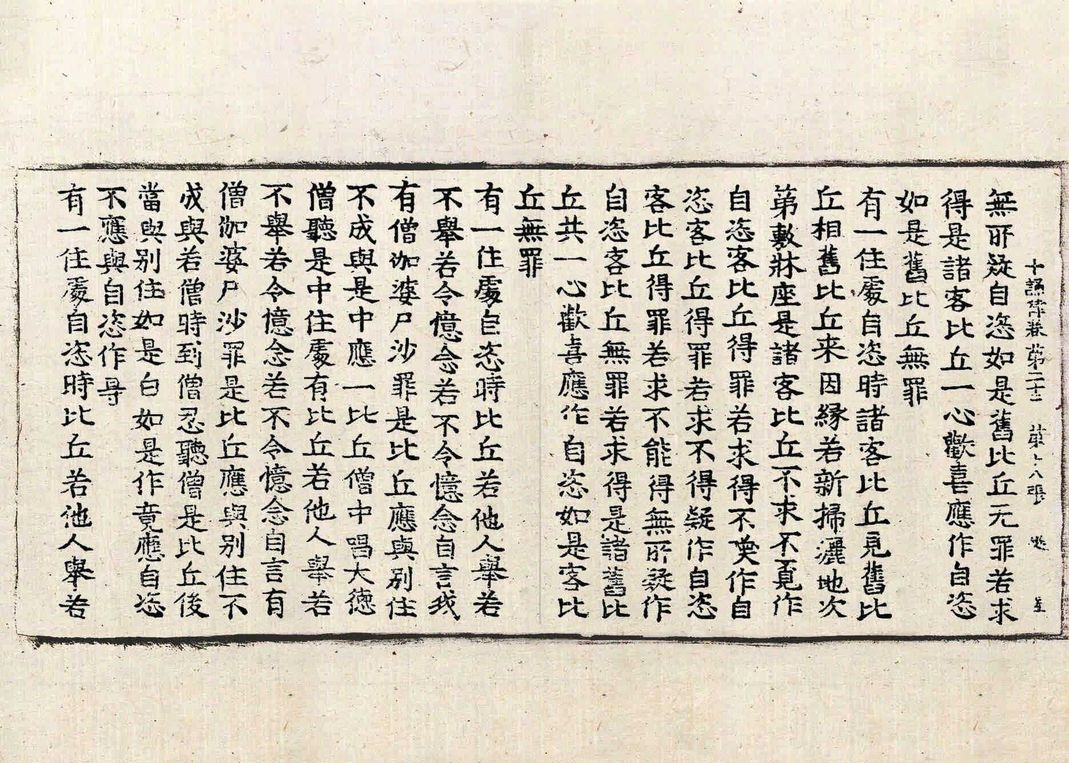 十誦律卷第二十三 第十八張 㪅
無所疑自恣如是舊比丘无罪若求
得是諸客比丘一心歡喜應作自恣
如是舊比丘無罪
有一住處自恣時諸客比丘見舊比
丘相舊比丘来因緣若新掃灑地次
第敷牀座是諸客比丘不求不覓作
自恣客比丘得罪若求得不喚作自
恣客比丘得罪若求不得疑作自恣
客比丘得罪若求不能得無所疑作
自恣客比丘無罪若求得是諸舊比
丘共一心歡喜應作自恣如是客比
丘無罪
有一住處自恣時比丘若他人舉若
不舉若令憶念若不令憶念自言我
有僧伽婆尸沙罪是比丘應與別住
不成與是中應一比丘僧中唱大德
僧聽是中住處有比丘若他人舉若
不舉若令憶念若不令憶念自言有
僧伽婆尸沙罪是比丘應與別住不
成與若僧時到僧忍聽僧是比丘後
當與別住如是白如是作竟應自恣
不應與自恣作㝵
有一住處自恣時比丘若他人舉若